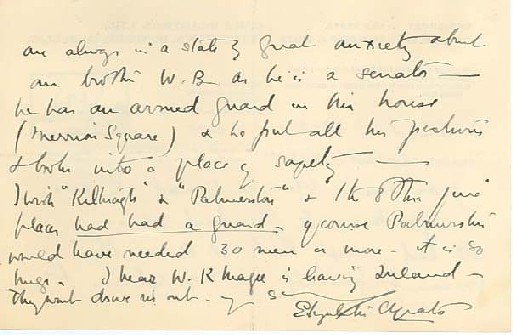 are always in a state of great anxiety about
our brother W.B as he is a senator —
he has an armed guard in his house
(Merrion Square) & he put all his pictures
& books into a place of safety —
I wish "Kilteragh" & "Palmerston" & "the
places had had a guard - of course Palmerston
would have needed 30 men or more - it is so
huge. I hear W. K Magee is leaving Ireland -
They wont drive us out -
Elizabeth C Yeats